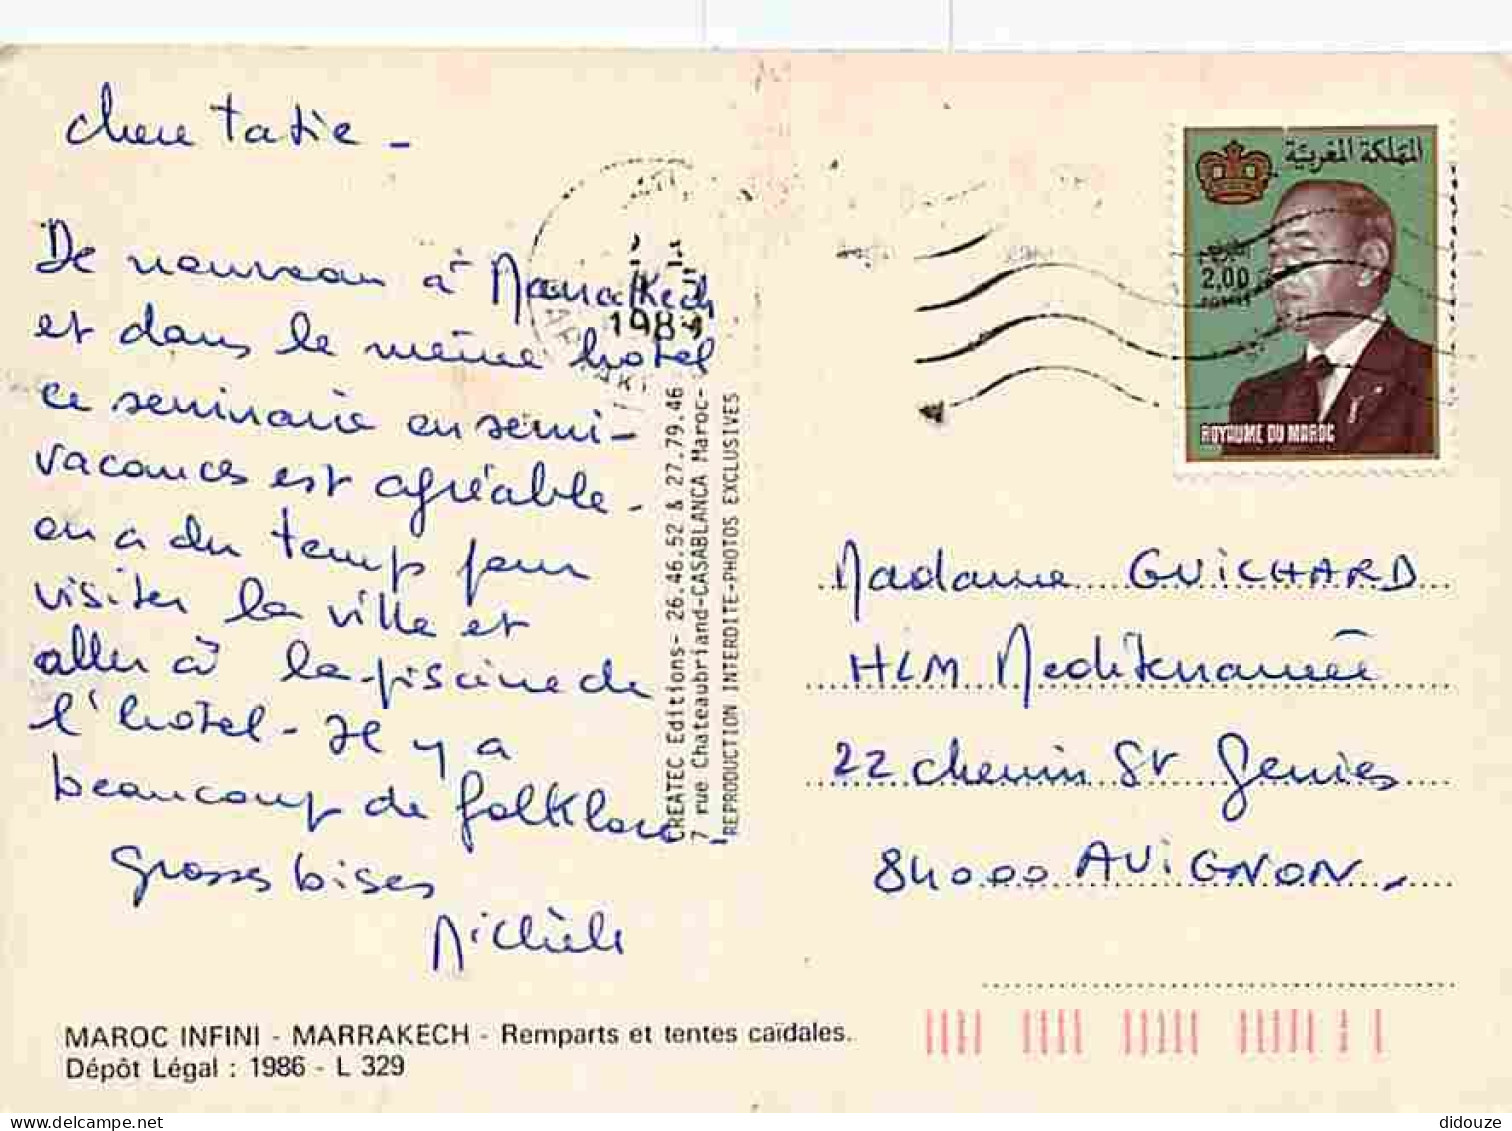 chere tatie -
De nouveau à Marrakech
et dans le même hotel
ce seminaire en semi-
vacances est agréable -
on a du temps pour
visiter la ville et
aller à la piscine de
l'hotel - Il y a
beaucoup de folklore -
Grosses bises
Michèle
MAROC INFINI - MARRAKECH - Remparts et tentes caïdales.
Dépôt Légal : 1986 - L 329
1989
CREATEC Editions- 26.46.52 & 27.79.46
7 rue Chateaubriand-CASABLANCA Maroc-
REPRODUCTION INTERDITE-PHOTOS EXCLUSIVES
المملكة المغربية
البريد
2,00
POSTES
ROYAUME DU MAROC
Madame GUICHARD
HLM Mediterranée
22 chemin St Genies
84000 AViGNON -
didouze